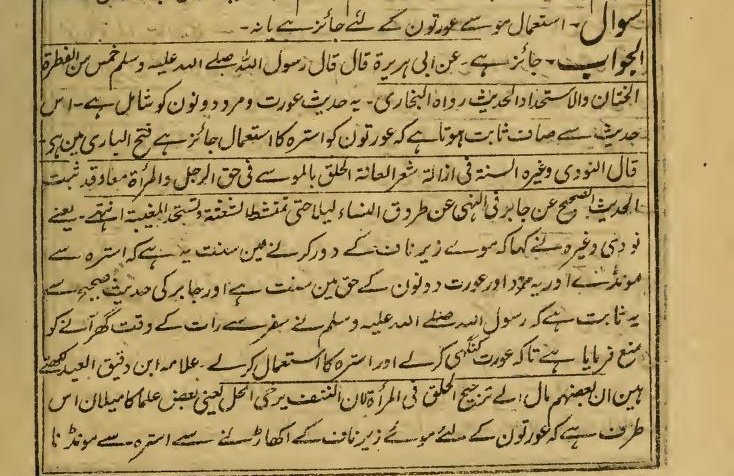 سوال - استعمال موسے عورتون کے لئے جائز ہے یا نہ -
الجواب - جائز ہے - عن ابی ہریرۃ قال قال رسول اللہ صلے اللہ علیہ وسلم خمس من الفطرۃ
الختان والاستحداد الحدیث رواہ البخاری - یہ حدیث عورت و مرد دونون کو شامل ہے - اس
حدیث سے صاف ثابت ہوتا ہے کہ عورتون کو استرہ کا استعمال جائز ہے فتح الباری مین ہے
قال النووی وغیرہ السنۃ فی ازالۃ شعر العانۃ الحلق بالموسے فی حق الرجل والمرأۃ معا وقد ثبت
الحدیث الصحیح عن جابر فی النہی عن طروق النساء لیلا حتی تمتشط الشعثۃ وتستحد المغیبۃ انتہے - یعنے
نووی وغیرہ نے کہا کہ موے زیر ناف کے دور کرنے مین سنت یہ ہے کہ استرہ سے
مونڈے اور یہ مرد اور عورت دونون کے حق مین سنت ہے اور جابر کی حدیث صحیح سے
یہ ثابت ہے کہ رسول اللہ صلے اللہ علیہ وسلم نے سفر سے رات کے وقت گھر آنے کو
منع فرمایا ہے تاکہ عورت کنگھی کرلے اور استرہ کا استعمال کرلے - علامہ ابن دقیق العید لکھتے
ہین ان بعضہم مال الے ترجیح الحلق فی المرأۃ لان النتف یرخی المحل یعنی بعض علما کا میلان اس
طرف ہے کہ عورتون کے لئے موئے زیر ناف کے اکھاڑنے سے استرہ سے مونڈنا